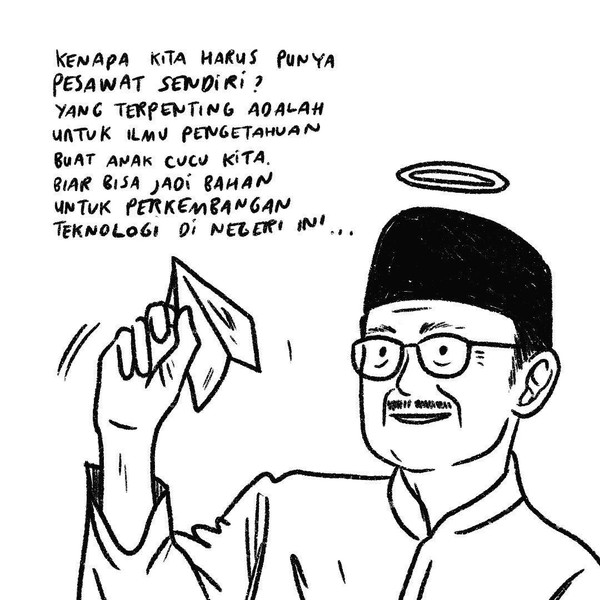 KENAPA KITA HARUS PUNYA
PESAWAT SENDIRI?
YANG TERPENTING ADALAH
UNTUK ILMU PENGETAHUAN
BUAT ANAK CUCU KITA.
BIAR BISA JADI BAHAN
UNTUK PERKEMBANGAN
TEKNOLOGI DI NEGERI INI...